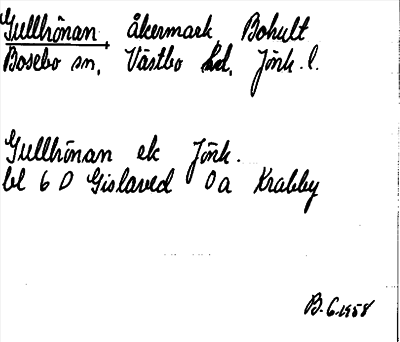 Gullhönan, åkermark, Bohult
Bosebo sn, Västbo hd, Jönk. l.
Gullhönan ek Jönk.
bl 6 D Gislaved 0a Krabby
B. G. 1958